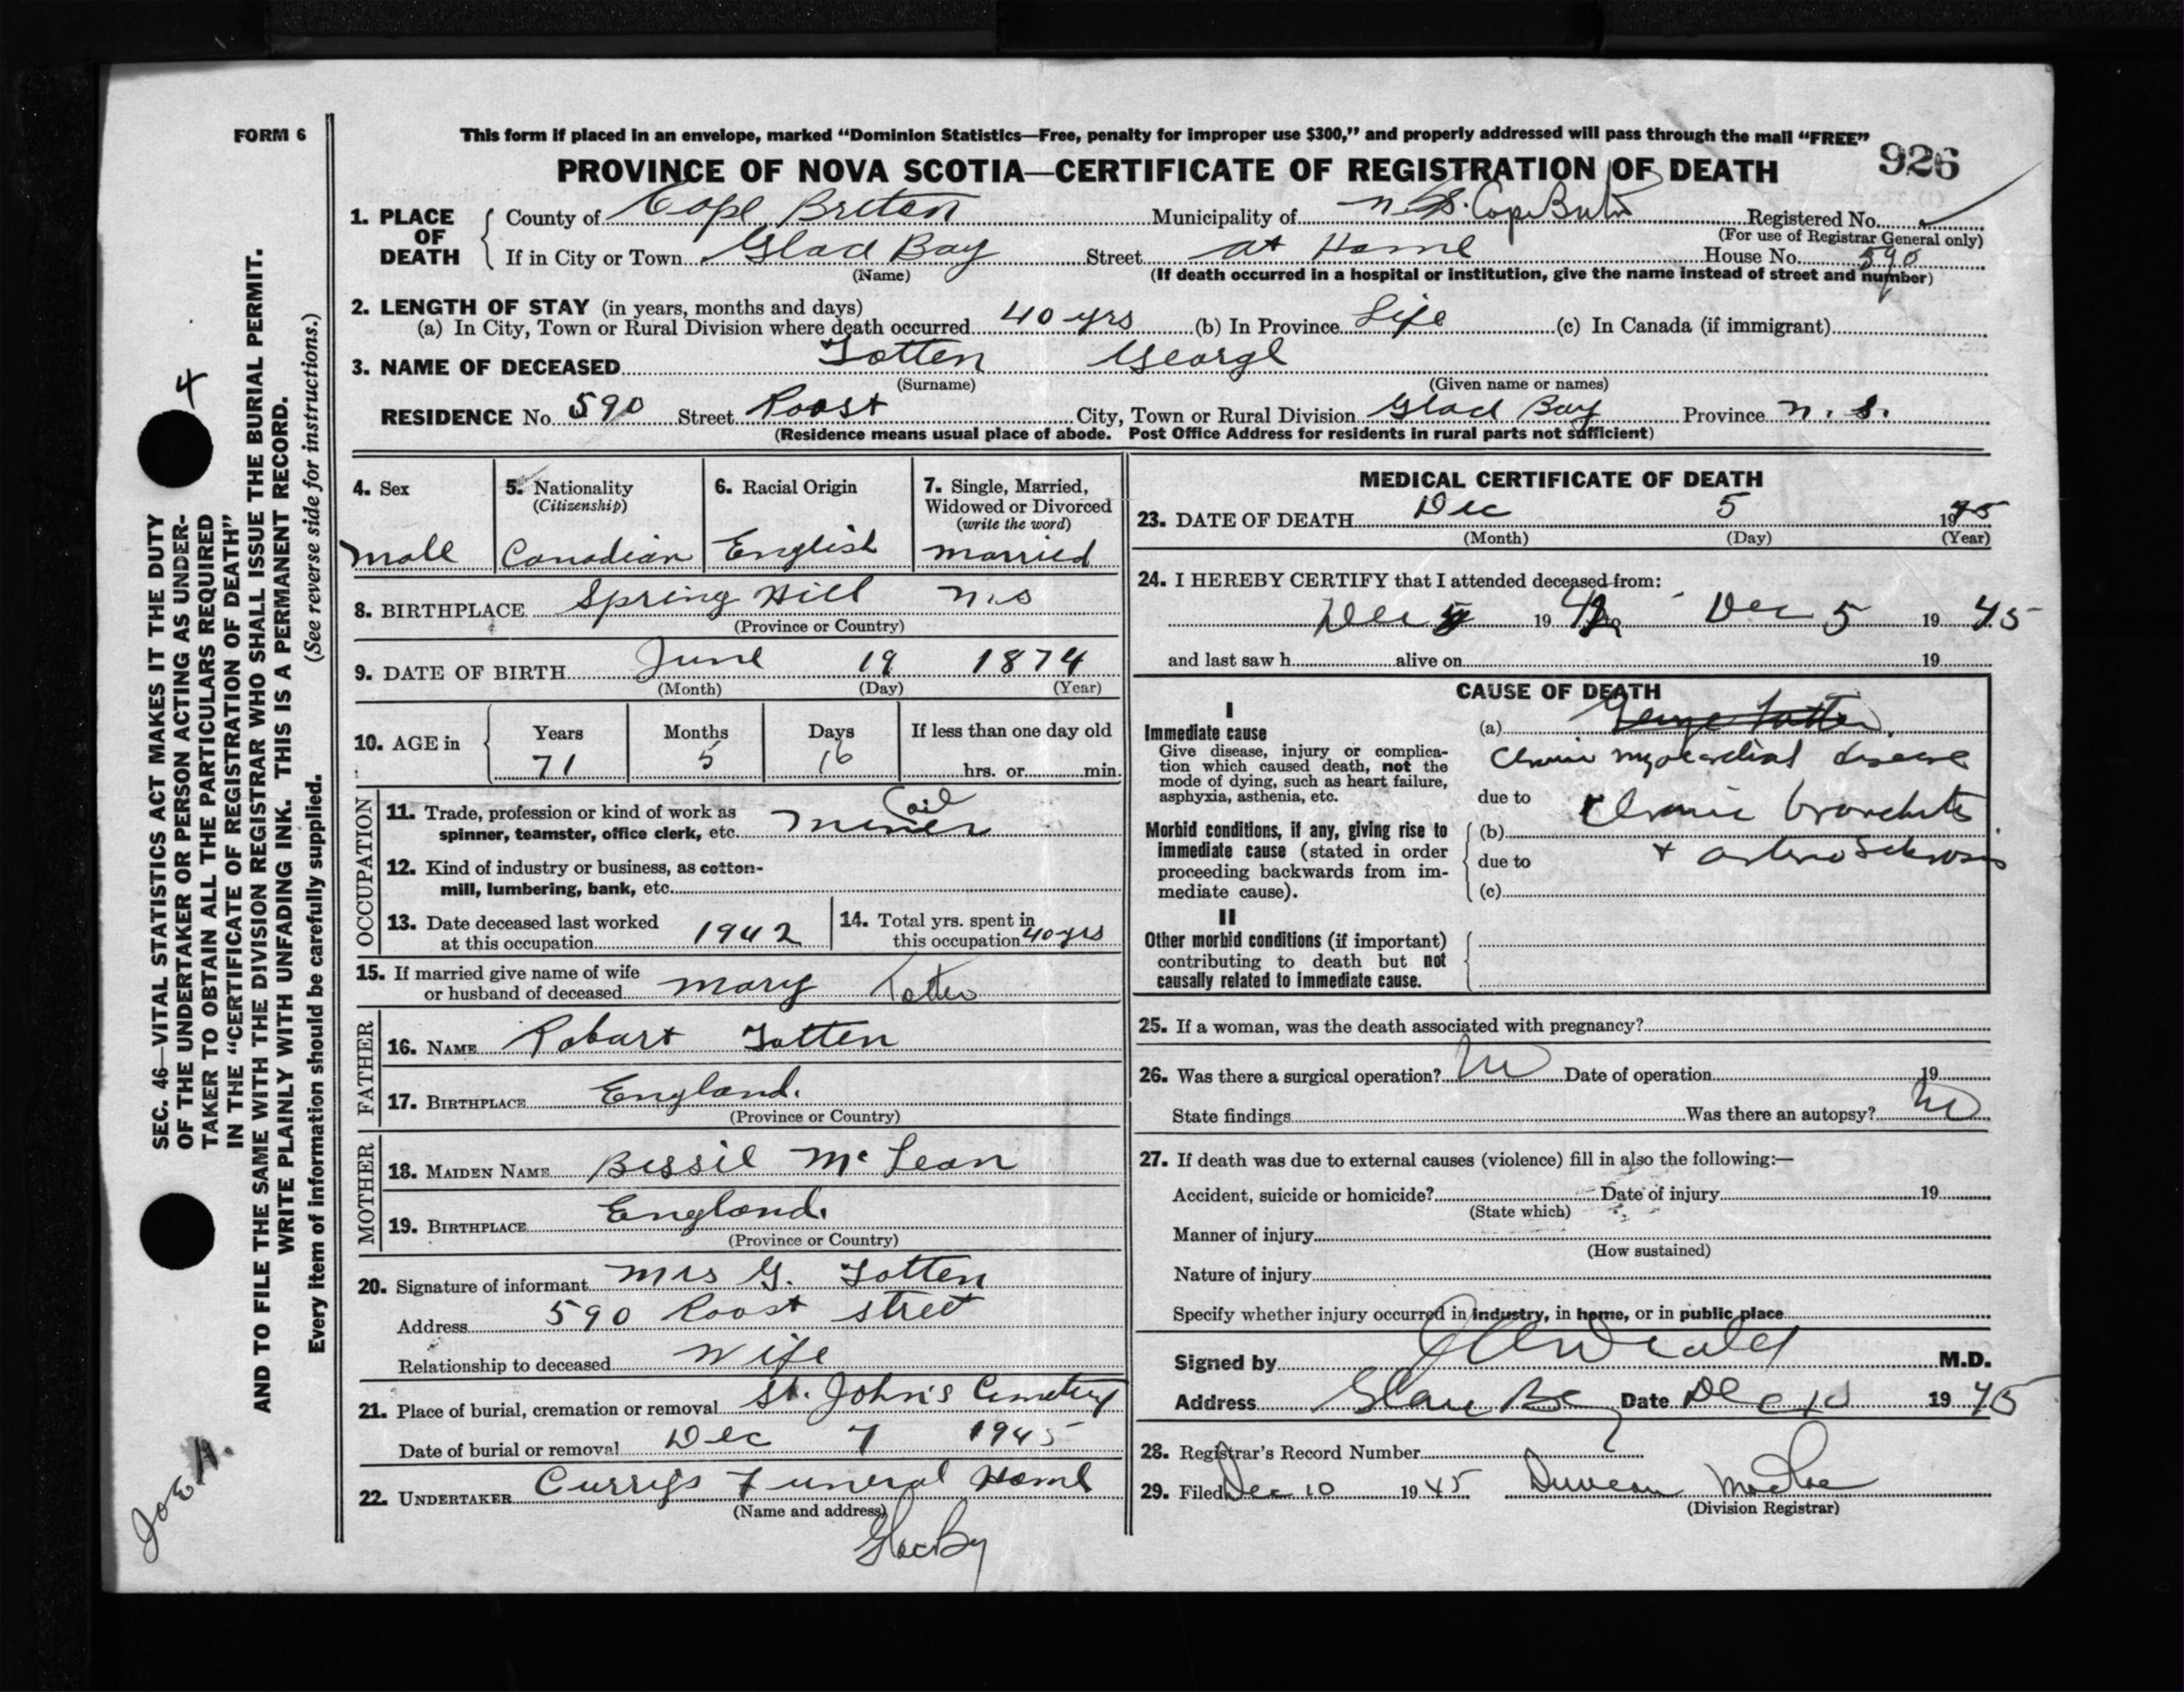 FORM 6
This form if placed in an envelope, marked “Dominion Statistics—Free, penalty for improper use $300,” and properly addressed will pass through the mail “FREE”
PROVINCE OF NOVA SCOTIA—CERTIFICATE OF REGISTRATION OF DEATH 926
1. PLACE OF DEATH
County of Cape Breton Municipality of Registered No.
(For use of Registrar General only)
If in City or Town Glace Bay Street at Home House No. 590
(Name) (If death occurred in a hospital or institution, give the name instead of street and number)
2. LENGTH OF STAY (in years, months and days)
(a) In City, Town or Rural Division where death occurred 40 yrs (b) In Province Life (c) In Canada (if immigrant)
3. NAME OF DECEASED Totten George
(Surname) (Given name or names)
RESIDENCE No. 590 Street Roost City, Town or Rural Division Glace Bay Province N. S.
(Residence means usual place of abode. Post Office Address for residents in rural parts not sufficient)
4. Sex
Male
5. Nationality
(Citizenship)
Canadian
6. Racial Origin
English
7. Single, Married,
Widowed or Divorced
(write the word)
Married
8. BIRTHPLACE Spring Hill N.S
(Province or Country)
9. DATE OF BIRTH June 19 1874
(Month) (Day) (Year)
10. AGE in Years Months Days If less than one day old
71 5 16 hrs. or min.
OCCUPATION
11. Trade, profession or kind of work as
spinner, teamster, office clerk, etc. Miner
12. Kind of industry or business, as cotton-
mill, lumbering, bank, etc.
13. Date deceased last worked
at this occupation 1942
14. Total yrs. spent in
this occupation 40 yrs
15. If married give name of wife
or husband of deceased Mary Totten
FATHER
16. NAME Robart Totten
17. BIRTHPLACE England.
(Province or Country)
MOTHER
18. MAIDEN NAME Bessie Mc Lean
19. BIRTHPLACE England.
(Province or Country)
20. Signature of informant Mrs G. Totten
Address 590 Roost street
Relationship to deceased Wife
21. Place of burial, cremation or removal St. John's Cemetery
Date of burial or removal Dec 7 1945
22. UNDERTAKER Curry's Funeral Home
(Name and address)
MEDICAL CERTIFICATE OF DEATH
23. DATE OF DEATH Dec 5 1945
(Month) (Day) (Year)
24. I HEREBY CERTIFY that I attended deceased from:
Dec 19 to Dec 5 19 45
and last saw h alive on 19
CAUSE OF DEATH
I
Immediate cause
Give disease, injury or complica-
tion which caused death, not the
mode of dying, such as heart failure,
asphyxia, asthenia, etc.
(a) George Totten
Chronic myocardial disease
due to Chronic bronchitis
Morbid conditions, if any, giving rise to
immediate cause (stated in order
proceeding backwards from im-
mediate cause).
(b)
due to + arterio Sclerosis
(c)
II
Other morbid conditions (if important)
contributing to death but not
causally related to immediate cause.
25. If a woman, was the death associated with pregnancy?
26. Was there a surgical operation? No Date of operation 19
State findings Was there an autopsy? No
27. If death was due to external causes (violence) fill in also the following:—
Accident, suicide or homicide? Date of injury 19
(State which)
Manner of injury
(How sustained)
Nature of injury
Specify whether injury occurred in industry, in home, or in public place
Signed by M.D.
Address Glace Bay Date Dec 10 19 45
28. Registrar's Record Number
29. Filed Dec 10 19 45 Duncan
(Division Registrar)
SEC. 46—VITAL STATISTICS ACT MAKES IT THE DUTY
OF THE UNDERTAKER OR PERSON ACTING AS UNDER-
TAKER TO OBTAIN ALL THE PARTICULARS REQUIRED
IN THE “CERTIFICATE OF REGISTRATION OF DEATH”
AND TO FILE THE SAME WITH THE DIVISION REGISTRAR WHO SHALL ISSUE THE BURIAL PERMIT.
WRITE PLAINLY WITH UNFADING INK. THIS IS A PERMANENT RECORD.
Every item of information should be carefully supplied. (See reverse side for instructions.)
4